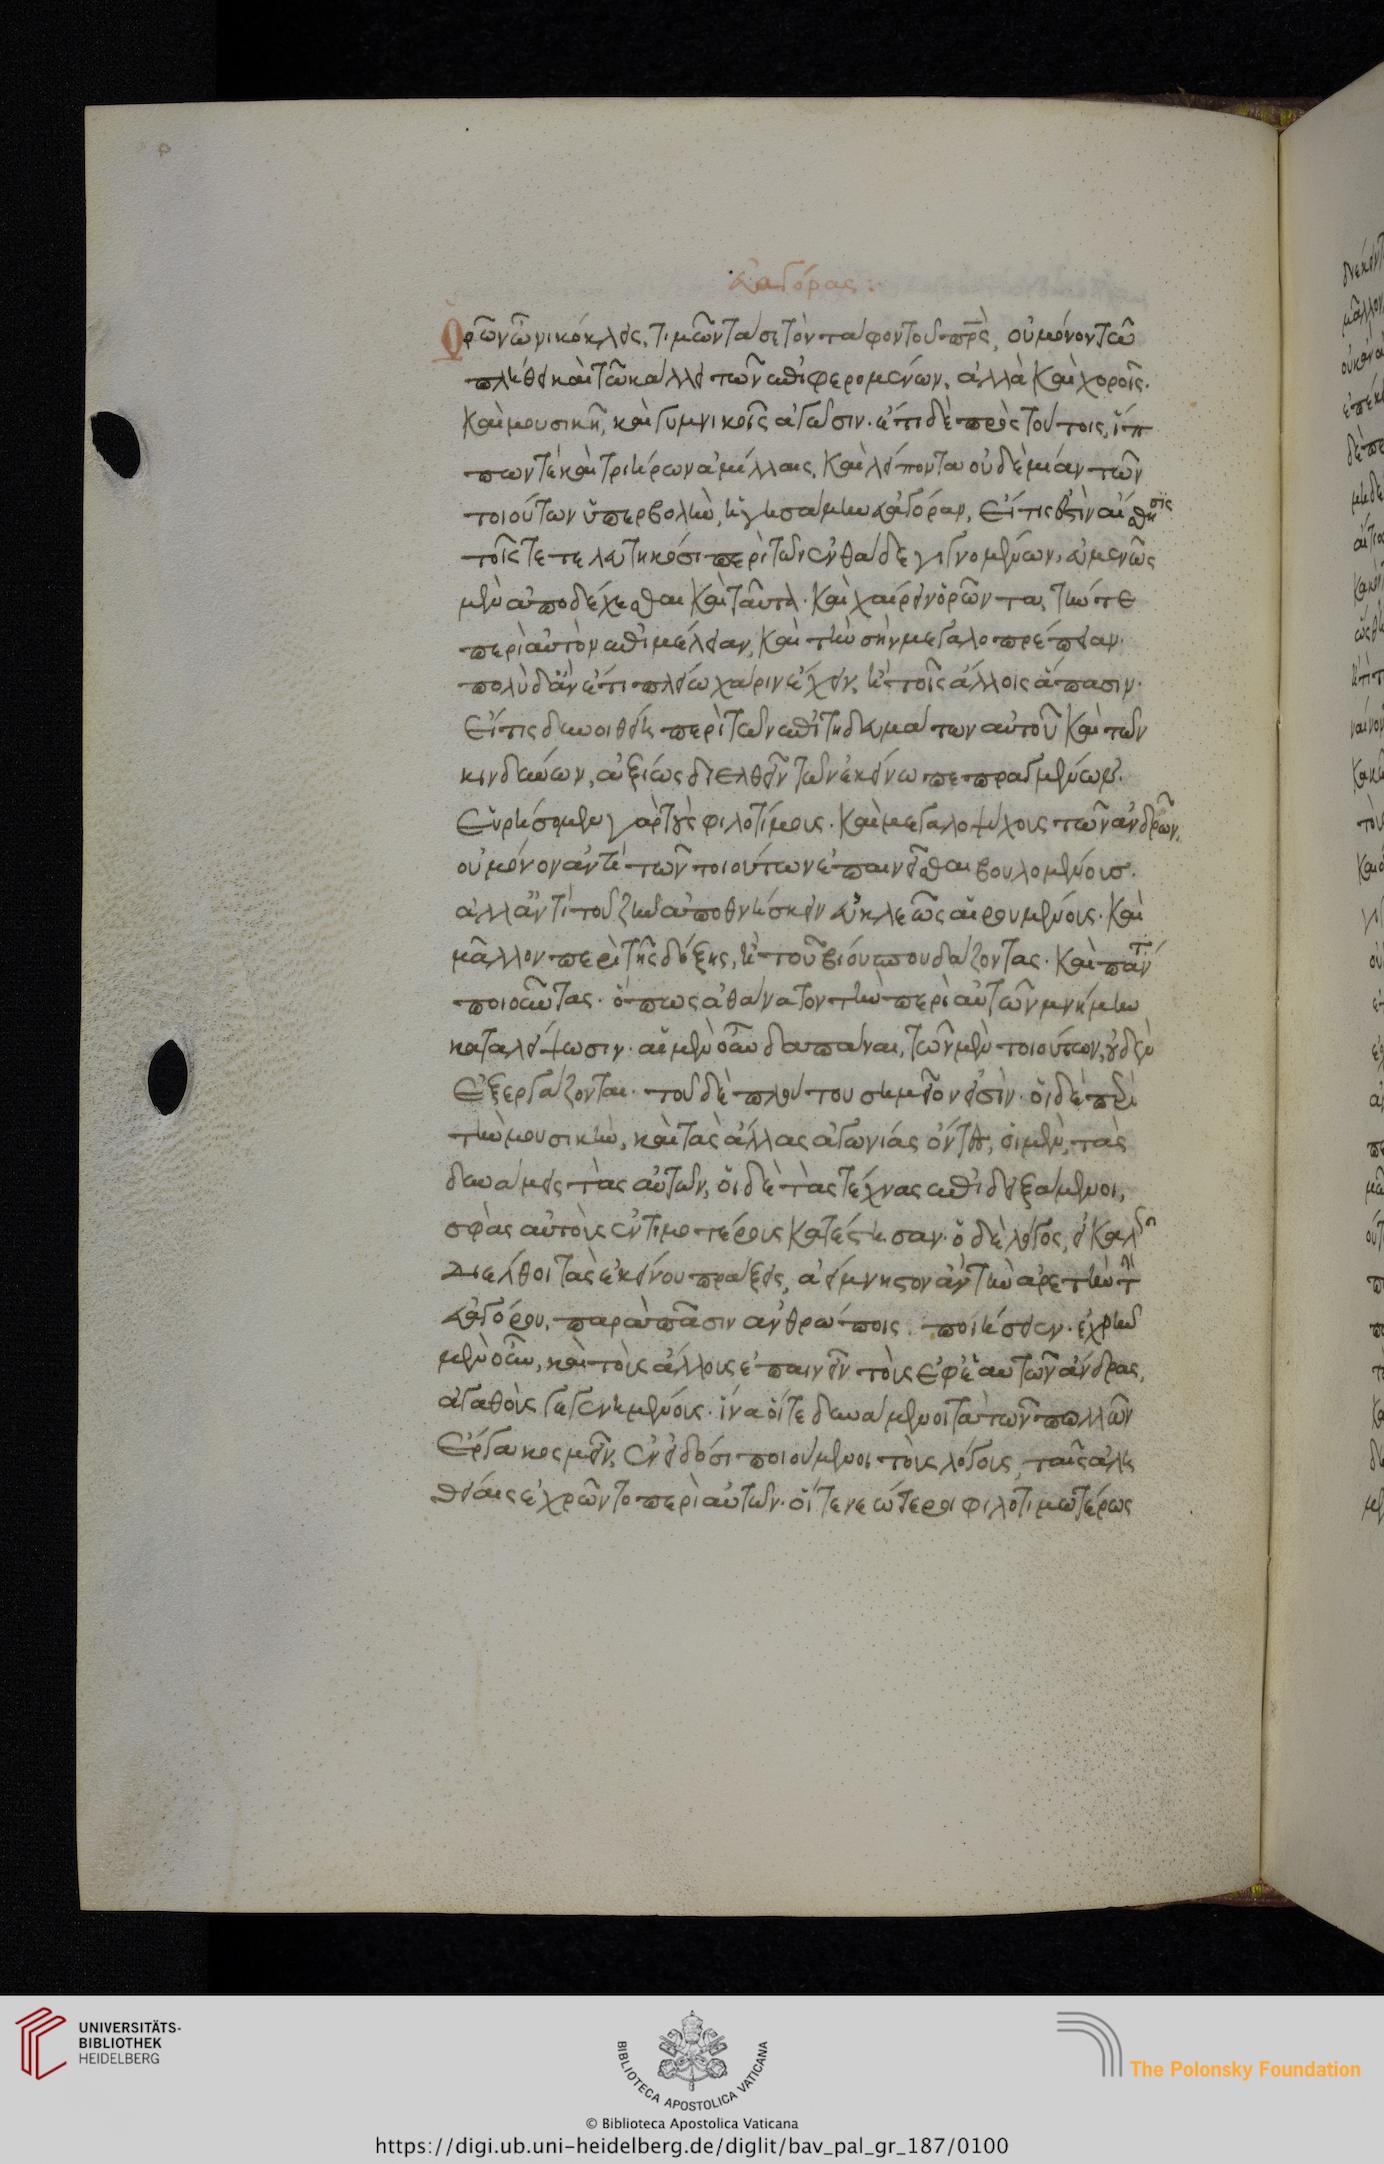 Εὐαγόρας:
Ὁρῶν ὦ νικόκλεις, τιμῶντά σε τὸν τάφον τοῦ πρς, οὐ μόνον τῶ
πλήθει καὶ τῶ κάλλει τῶν ἐπιφερομένων, ἀλλὰ καὶ χοροῖς.
καὶ μουσικῆ, καὶ γυμνικοῖς ἀγῶσιν. ἔτι δὲ πρὸς τούτοις, ἵπ
πων τὲ καὶ τριήρων ἁμίλλαις, καὶ λείποντα οὐδὲ μίαν τῶν
τοιούτων ὑπερβολὴν, ἡγησάμην εὐαγόραν, εἴ τις ἐστὶν αἴσθησις
τοῖς τετελευτηκόσι περὶ τῶν ἐνθάδε γιγνομένων, εὐμενῶς
μὲν ἀποδέχεσθαι καὶ ταῦτα. καὶ χαίρειν ὁρῶντα, τήν τε
περὶ αὐτὸν ἐπιμέλειαν, καὶ τὴν σὴν μεγαλοπρέπειαν.
πολὺ δ' ἂν ἔτι πλείω χάριν ἔχειν, ἢ τοῖς ἄλλοις ἅπασιν.
Εἴ τις δυνηθείη περὶ τῶν ἐπιτηδευμάτων αὐτοῦ καὶ τῶν
κινδύνων, ἀξίως διελθεῖν τῶν ἐκείνω πεπραγμένων.
Εὑρήσομεν γὰρ τοὺς φιλοτίμους. καὶ μεγαλοψύχους τῶν ἀνδρῶν,
οὐ μόνον ἀντὶ τῶν τοιούτων ἐπαινεῖσθαι βουλομένους.
ἀλλ' ἀντὶ τοῦ ζῆν ἀποθνήσκειν εὐκλεῶς αἱρουμένους. καὶ
μᾶλλον περὶ τῆς δόξης, ἢ τοῦ βίου σπουδάζοντας. καὶ πάντ
ποιοῦντας. ὅπως ἀθάνατον τὴν περὶ αὑτῶν μνήμην
καταλείψωσιν. αἱ μὲν οὖν δαπάναι, τῶν μὲν τοιούτων, οὐδὲν
Ἐξεργάζονται. τοῦ δὲ πλούτου σημεῖον εἰσίν. οἱ δὲ περὶ
τὴν μουσικὴν, καὶ τὰς ἄλλας ἀγωνίας ὄντες, οἱ μὲν, τὰς
δυνάμεις τὰς αὑτῶν, οἱ δὲ τὰς τέχνας ἐπιδειξάμενοι,
σφᾶς αὐτοὺς ἐντιμοτέρους κατέστησαν. ὁ δὲ λόγος, εἰ καλῶς
διέλθοι τὰς ἐκείνου πράξεις, ἀείμνηστον ἂν τὴν ἀρετὴν τὴν
εὐαγόρου, παρὰ πᾶσιν ἀνθρώποις ποιήσειεν. ἐχρῆν
μὲν οὖν, καὶ τοὺς ἄλλους ἐπαινεῖν τοὺς ἐφ' ἑαυτῶν ἄνδρας,
ἀγαθοὺς γεγενημένους. ἵνα οἵ τε δυνάμενοι τὰ τῶν πολλῶν
Ἔργα κοσμεῖν, ἐν εἰδόσι ποιούμενοι τοὺς λόγους, ταῖς ἀλη
θείαις ἐχρῶντο περὶ αὐτῶν. οἵ τε νεώτεροι φιλοτιμωτέρως
UNIVERSITÄTS-
BIBLIOTHEK
HEIDELBERG
BIBLIOTECA APOSTOLICA VATICANA
The Polonsky Foundation
© Biblioteca Apostolica Vaticana
https://digi.ub.uni-heidelberg.de/diglit/bav_pal_gr_187/0100